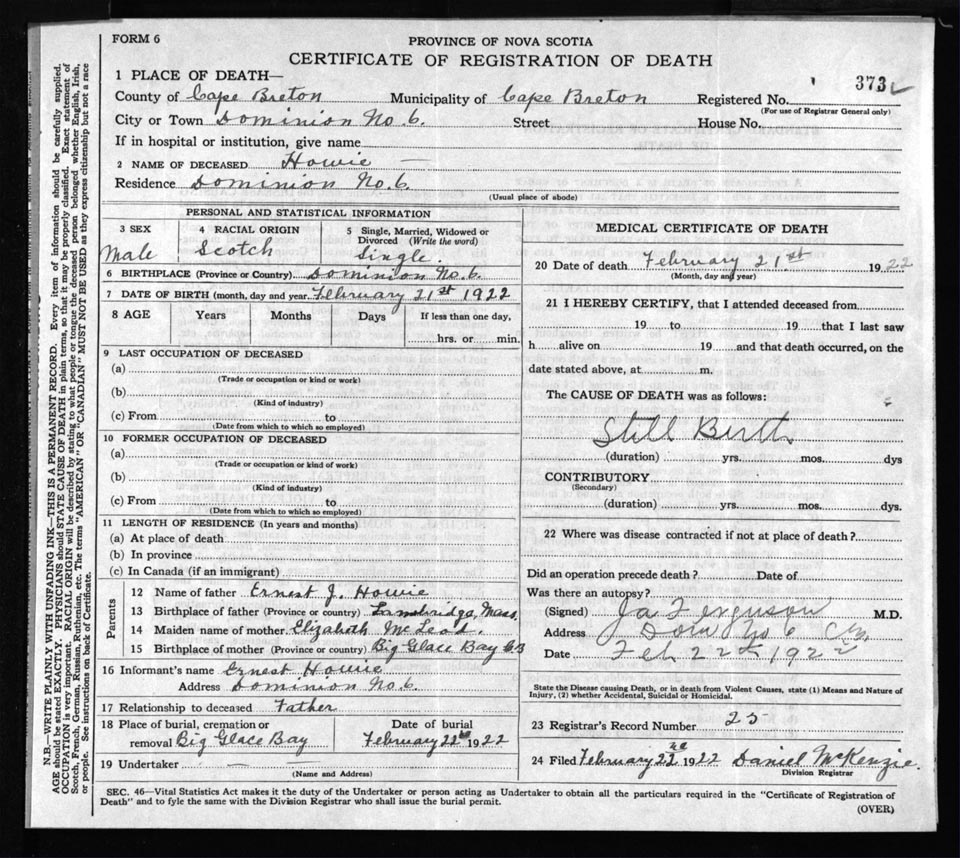 FORM 6
PROVINCE OF NOVA SCOTIA
CERTIFICATE OF REGISTRATION OF DEATH
373
1 PLACE OF DEATH—
County of Cape Breton Municipality of Cape Breton Registered No.
(For use of Registrar General only)
City or Town Dominion No. 6. Street House No.
If in hospital or institution, give name
2 NAME OF DECEASED Howie —
Residence Dominion No. 6.
(Usual place of abode)
PERSONAL AND STATISTICAL INFORMATION
3 SEX 4 RACIAL ORIGIN 5 Single, Married, Widowed or Divorced (Write the word)
Male Scotch Single.
6 BIRTHPLACE (Province or Country) Dominion No. 6.
7 DATE OF BIRTH (month, day and year February 21st 1922
8 AGE Years Months Days If less than one day,
hrs. or min.
9 LAST OCCUPATION OF DECEASED
(a)
(Trade or occupation or kind or work)
(b)
(Kind of industry)
(c) From to
(Date from which to which so employed)
10 FORMER OCCUPATION OF DECEASED
(a)
(Trade or occupation or kind of work)
(b)
(Kind of industry)
(c) From to
(Date from which to which so employed)
11 LENGTH OF RESIDENCE (In years and months)
(a) At place of death
(b) In province
(c) In Canada (if an immigrant)
Parents
12 Name of father Ernest J. Howie
13 Birthplace of father (Province or country) Cambridge, Mass.
14 Maiden name of mother Elizabeth McLeod.
15 Birthplace of mother (Province or country) Big Glace Bay C.B
16 Informant's name Ernest Howie
Address Dominion No. 6.
17 Relationship to deceased Father
18 Place of burial, cremation or removal Big Glace Bay Date of burial February 22nd 1922
19 Undertaker — —
(Name and Address)
MEDICAL CERTIFICATE OF DEATH
20 Date of death February 21st 1922
(Month, day and year)
21 I HEREBY CERTIFY, that I attended deceased from
19 to 19 that I last saw
h alive on 19 and that death occurred, on the
date stated above, at m.
The CAUSE OF DEATH was as follows:
Still Birth
(duration) yrs. mos. dys
CONTRIBUTORY
(Secondary)
(duration) yrs. mos. dys.
22 Where was disease contracted if not at place of death?
Did an operation precede death? Date of
Was there an autopsy?
(Signed) Ferguson M.D.
Address Dom No 6 C.B.
Date Feb 22nd 1922
State the Disease causing Death, or in death from Violent Causes, state (1) Means and Nature of
Injury, (2) whether Accidental, Suicidal or Homicidal.
23 Registrar's Record Number 25
24 Filed February 22nd 1922 Daniel McKenzie.
Division Registrar
SEC. 46—Vital Statistics Act makes it the duty of the Undertaker or person acting as Undertaker to obtain all the particulars required in the "Certificate of Registration of
Death" and to fyle the same with the Division Registrar who shall issue the burial permit.
(OVER)
N.B.—WRITE PLAINLY WITH UNFADING INK—THIS IS A PERMANENT RECORD. Every item of information should be carefully supplied.
AGE should be stated EXACTLY. PHYSICIANS should STATE CAUSE OF DEATH in plain terms, so that it may be properly classified. Exact statement of
OCCUPATION is very important. RACIAL ORIGIN will be described by stating to what people or tongue the deceased person belonged whether English, Irish,
Scotch, French, German, Russian, Ruthenian, etc. The terms "AMERICAN" OR "CANADIAN" MUST NOT BE USED as they express citizenship but not a race
or people. See instructions on back of Certificate.